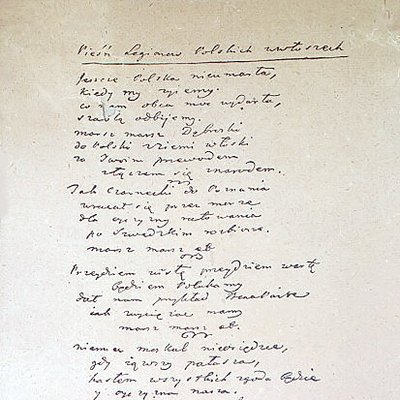 Pieśń Legionów Polskich we włoszech
Jeszcze Polska nieumarła,
kiedy my żyiemy.
co nam obca moc wydarła,
szablą odbijemy.
marsz marsz Dąbroski
do Polski z ziemi włoski
za Twoim przewodem
złączem się znarodem.
Jak Czarnecki do Poznania
wracał się przez morze
dla oyczyzny ratowania
po Szwedzkim rozbiorze.
marsz marsz etc
Przejdziem wisłę przejdziem wartę
będziem Polakamy
dał nam przykład Bonaparte
iak zwyciężać mamy
marsz marsz etc.
niemiec moskal nieosiędzie,
gdy iąwszy pałasza,
hasłem wszystkich zgoda będzie
y oyczyzna nasza.